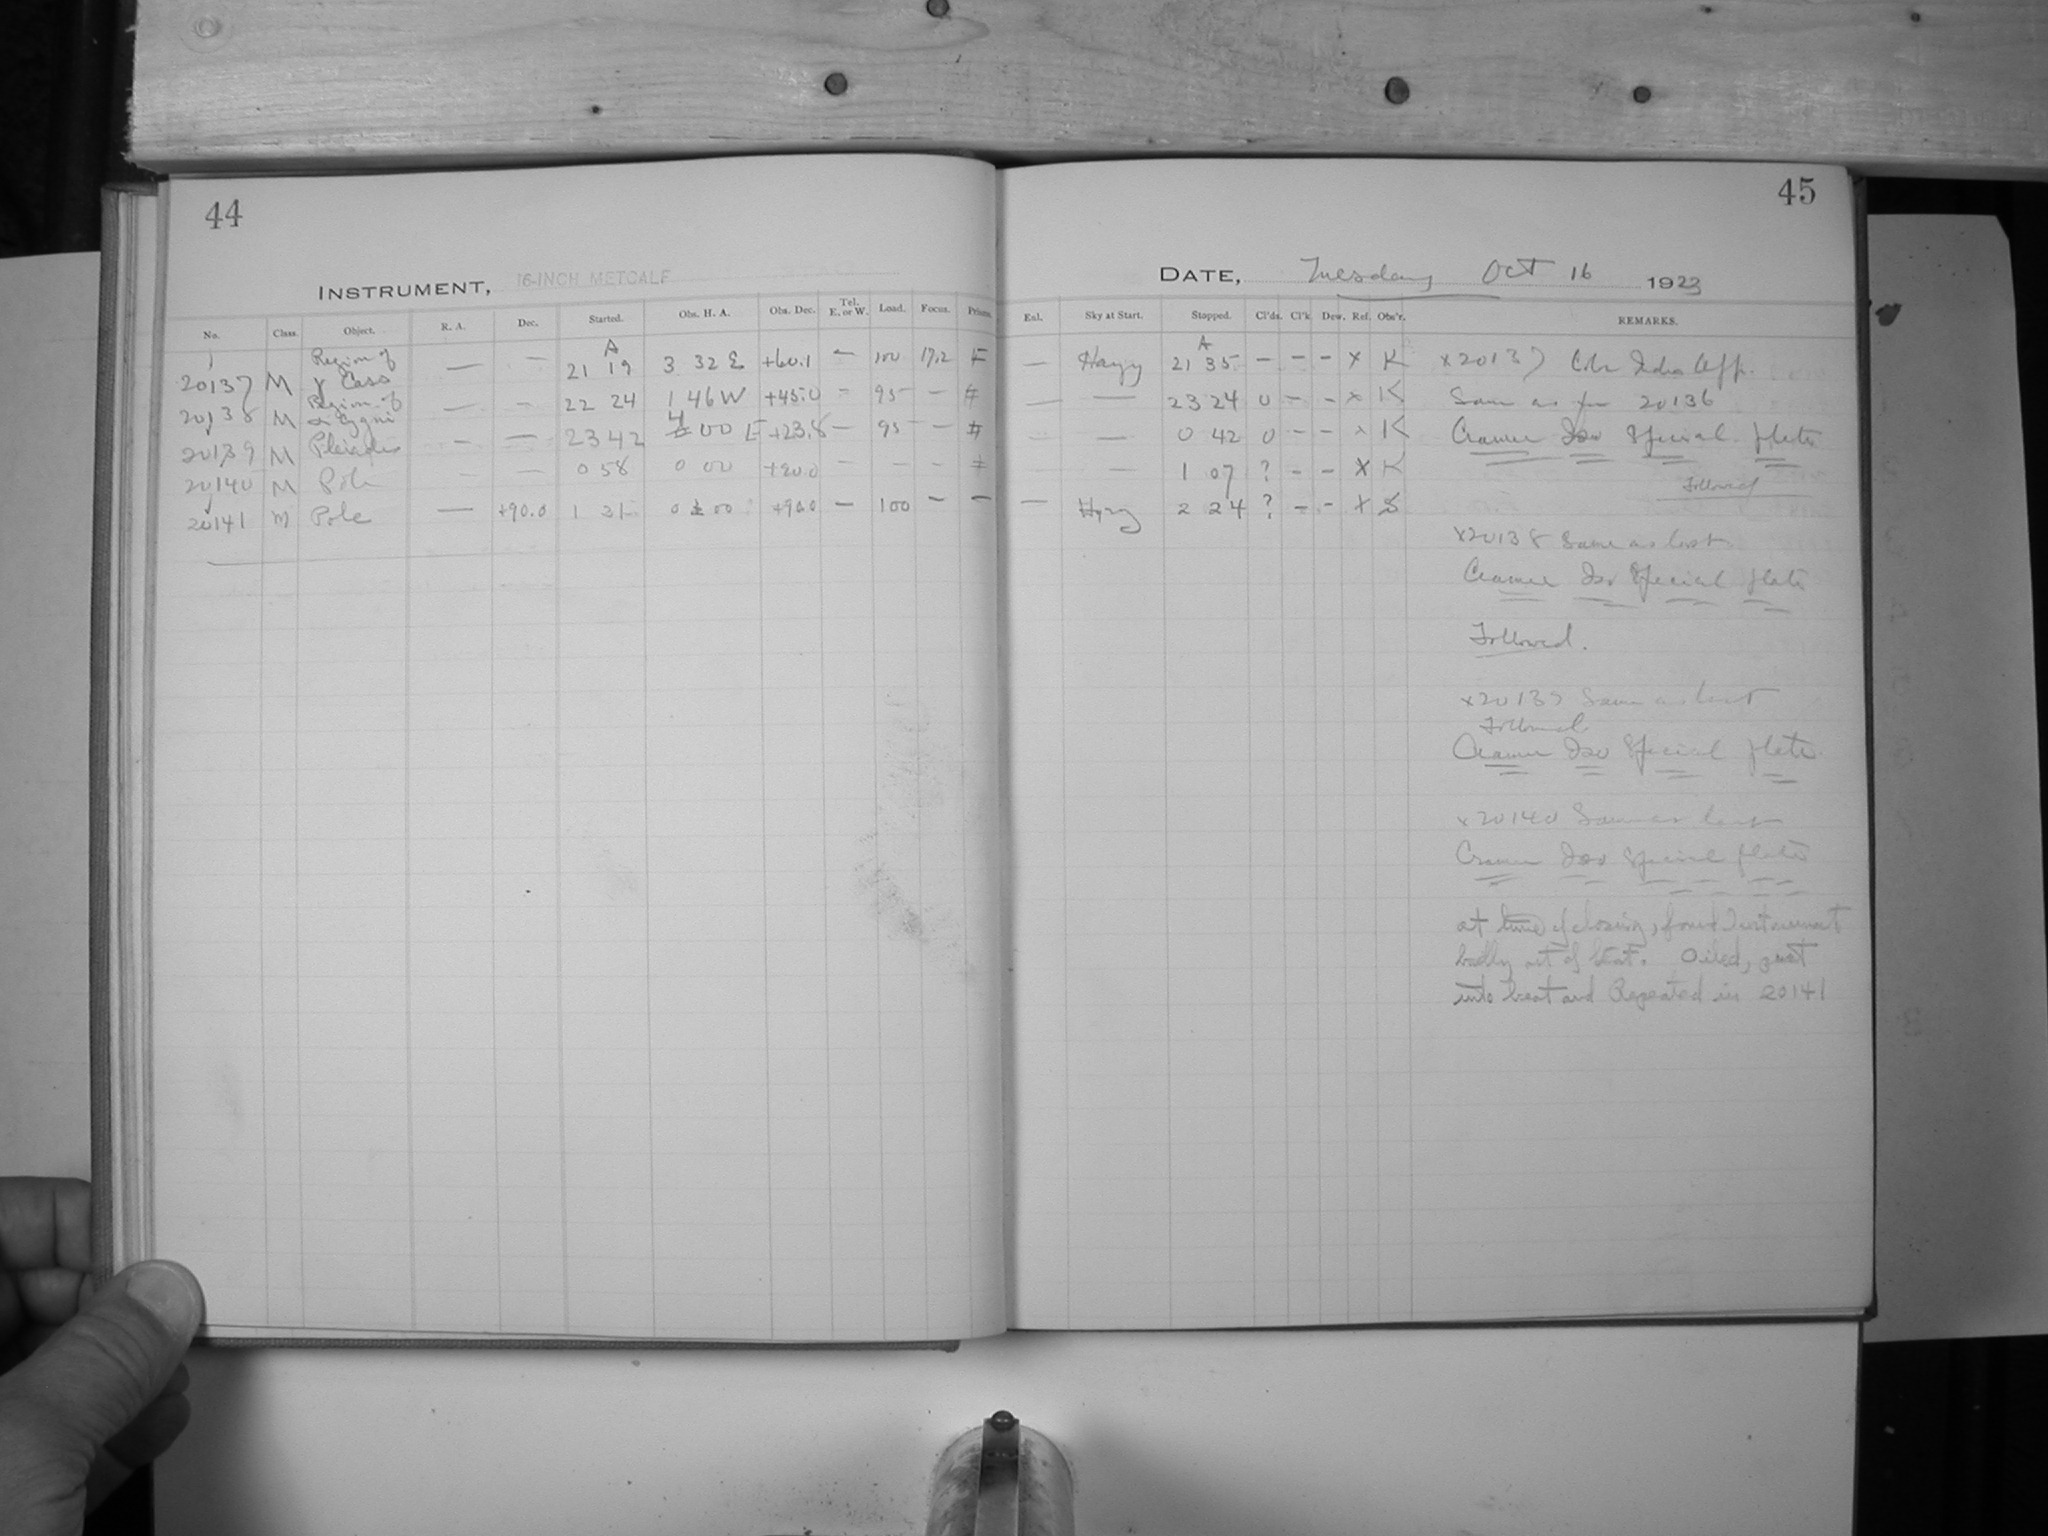 44
INSTRUMENT, 16-INCH METCALF
No. Class. Object. R. A. Dec. Started. Obs. H. A. Obs. Dec. Tel. E. or W. Load. Focus.
20137 M Region of γ Cass — — A 21 19 3 32 E +60.1 — 100 17.2
20138 M Region of α Cygni — — 22 24 1 46 W +45.0 — 95 —
20139 M Pleiades — — 23 42 4 00 E +23.8 — 95 —
20140 M Pole — — 0 58 0 00 +90.0 — — —
20141 M Pole — +90.0 1 0 00 +90.0 — 100 — —
45
DATE, Tuesday Oct 16 1923
Enl. Sky at Start. Stopped. Cl'ds. Cl'k. Dew. Ref. Obs'r. REMARKS.
— Hazy A 21 35 — — — x K x20137
— — 23 24 0 — — x K Same as for 20136
— — 0 42 0 — — x K Cramer Iso Special plate
— — 1 07 ? — — x K
Followed
— Hazy 2 24 ? — — x S
x20138 Same as last
Cramer Iso Special plate
Followed.
x20139 Same as last
Followed
Cramer Iso Special plate
x20140 Same as last
Cramer Iso Special plate
at time of closing, found Instrument
badly out of beat. Oiled, put
into beat and Repeated in 20141